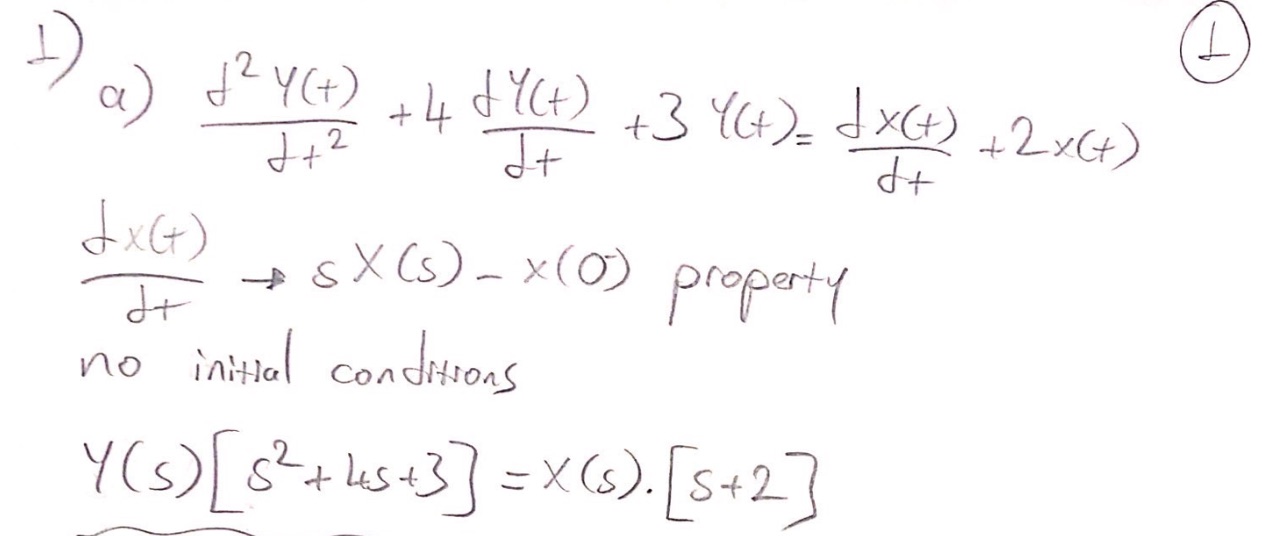 1) ①
a) d²Y(t)/dt² + 4 dY(t)/dt + 3 Y(t) = dx(t)/dt + 2x(t)
dx(t)/dt → sX(s) - x(0⁻) property
no initial conditions
Y(s)[s²+4s+3] = X(s).[s+2]